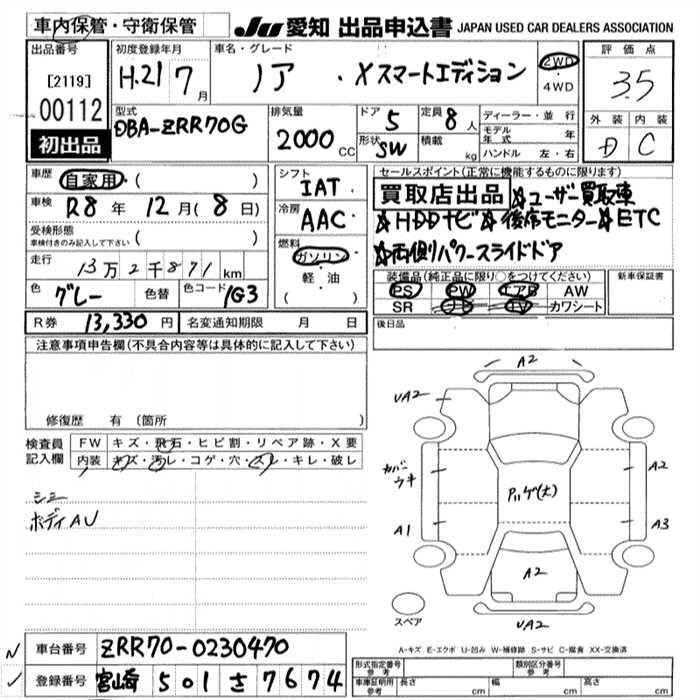 車内保管・守衛保管
JU 愛知 出品申込書 JAPAN USED CAR DEALERS ASSOCIATION
出品番号
[2119]
00112
初出品
初度登録年月
H.21 7月
車名・グレード
ノア ・Xスマートエディション
2WD
・
4WD
評価点
3.5
外装 内装
D C
型式
DBA-ZRR70G
排気量
2000 CC
ドア 5
形状 SW
定員 8 人
積載 kg
ディーラー・並行
モデル年式 年
ハンドル 左・右
車歴 自家用・( )
車検 R8 年 12 月 ( 8 日)
受検形態
車検付きのみ記入して下さい ( )
走行 13万2千871 km
色 グレー 色替 色コード 1G3
R券 13,330 円 名変通知期限 月 日
シフト
IAT
冷房
AAC
燃料
ガソリン
軽・油
( )
セールスポイント(正常に機能するものに限ります)
買取店出品 ☆ユーザー買取車
☆HDDナビ☆後席モニター☆ETC
☆両側パワースライドドア
装備品(純正品に限り○をつけてください)
PS PW エアB AW
SR ナビ TV カワシート
新車保証書
後日品
注意事項申告欄(不具合内容等は具体的に記入して下さい)
修復歴 有 (箇所
検査員記入欄
FW キズ・飛石・ヒビ割・リペア跡・X要
内装 キズ・汚レ・コゲ・穴・スレ・キレ・破レ
シミ
ボディAU
A2
UA2
カバーウキ
A2
Pハゲ(大)
A1
A3
A2
UA2
スペア
A-キズ E-エクボ U-凹み W-補修跡 S-サビ C-腐食 XX-交換済
車台番号 ZRR70-0230470
登録番号 宮崎 501 さ 7674
形式指定番号
参考
類別区分番号
参考
車庫証明用
参考
長さ cm 幅 cm 高さ cm